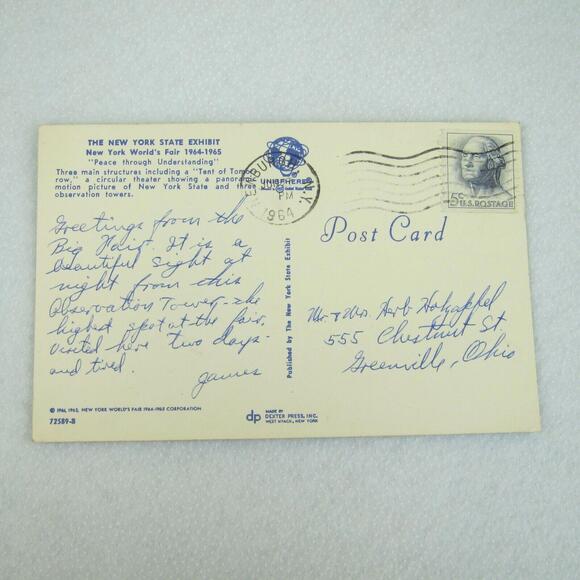 THE NEW YORK STATE EXHIBIT
New York World's Fair 1964-1965
"Peace through Understanding"
Three main structures including a "Tent of Tomor-
row," a circular theater showing a panoram
motion picture of New York State and three
observation towers.
UNISPHERE
N.Y.
PM
1964
5c U.S. POSTAGE
Post Card
Greetings from the
Big Fair. It is a
beautiful sight at
night from this
Observation Tower - the
highest spot at the fair.
Visited here two days -
and tired.
James
Mr & Mrs. Herb
555 Chestnut St.
Greenville, Ohio
Published by The New York State Exhibit
© 1961, 1962, NEW YORK WORLD'S FAIR 1964-1965 CORPORATION
72589-B
dp
MADE BY
DEXTER PRESS, INC.
WEST NYACK, NEW YORK